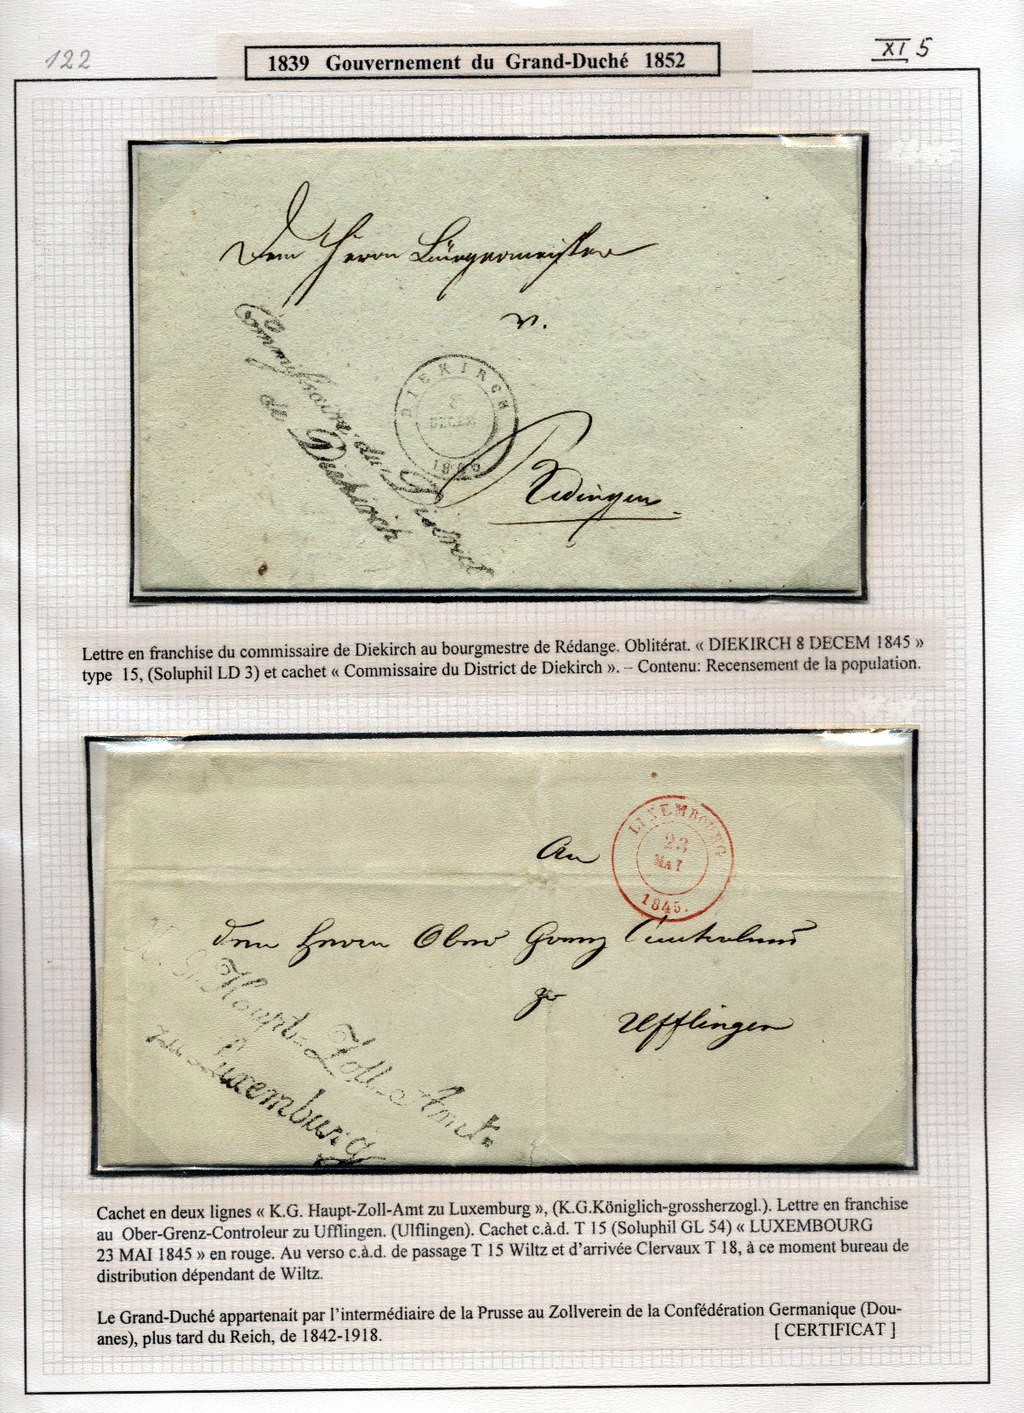 122
1839 Gouvernement du Grand-Duché 1852
XI 5
Dem Herrn Bürgermeister
v.
Redingen
Commissaire du District
de Diekirch
DIEKIRCH
8
DECEM
Lettre en franchise du commissaire de Diekirch au bourgmestre de Rédange. Oblitérat. « DIEKIRCH 8 DECEM 1845 »
type 15, (Soluphil LD 3) et cachet « Commissaire du District de Diekirch ». – Contenu: Recensement de la population.
LUXEMBOURG
23
MAI
1845.
An
dem Herrn Ober Grenz Controleur
zu
Ufflingen
K. G. Haupt-Zoll-Amt
zu Luxemburg
Cachet en deux lignes « K.G. Haupt-Zoll-Amt zu Luxemburg », (K.G.Königlich-grossherzogl.). Lettre en franchise
au Ober-Grenz-Controleur zu Ufflingen. (Ulflingen). Cachet c.à.d. T 15 (Soluphil GL 54) « LUXEMBOURG
23 MAI 1845 » en rouge. Au verso c.à.d. de passage T 15 Wiltz et d’arrivée Clervaux T 18, à ce moment bureau de
distribution dépendant de Wiltz.
Le Grand-Duché appartenait par l’intermédiaire de la Prusse au Zollverein de la Confédération Germanique (Dou-
anes), plus tard du Reich, de 1842-1918. [ CERTIFICAT ]